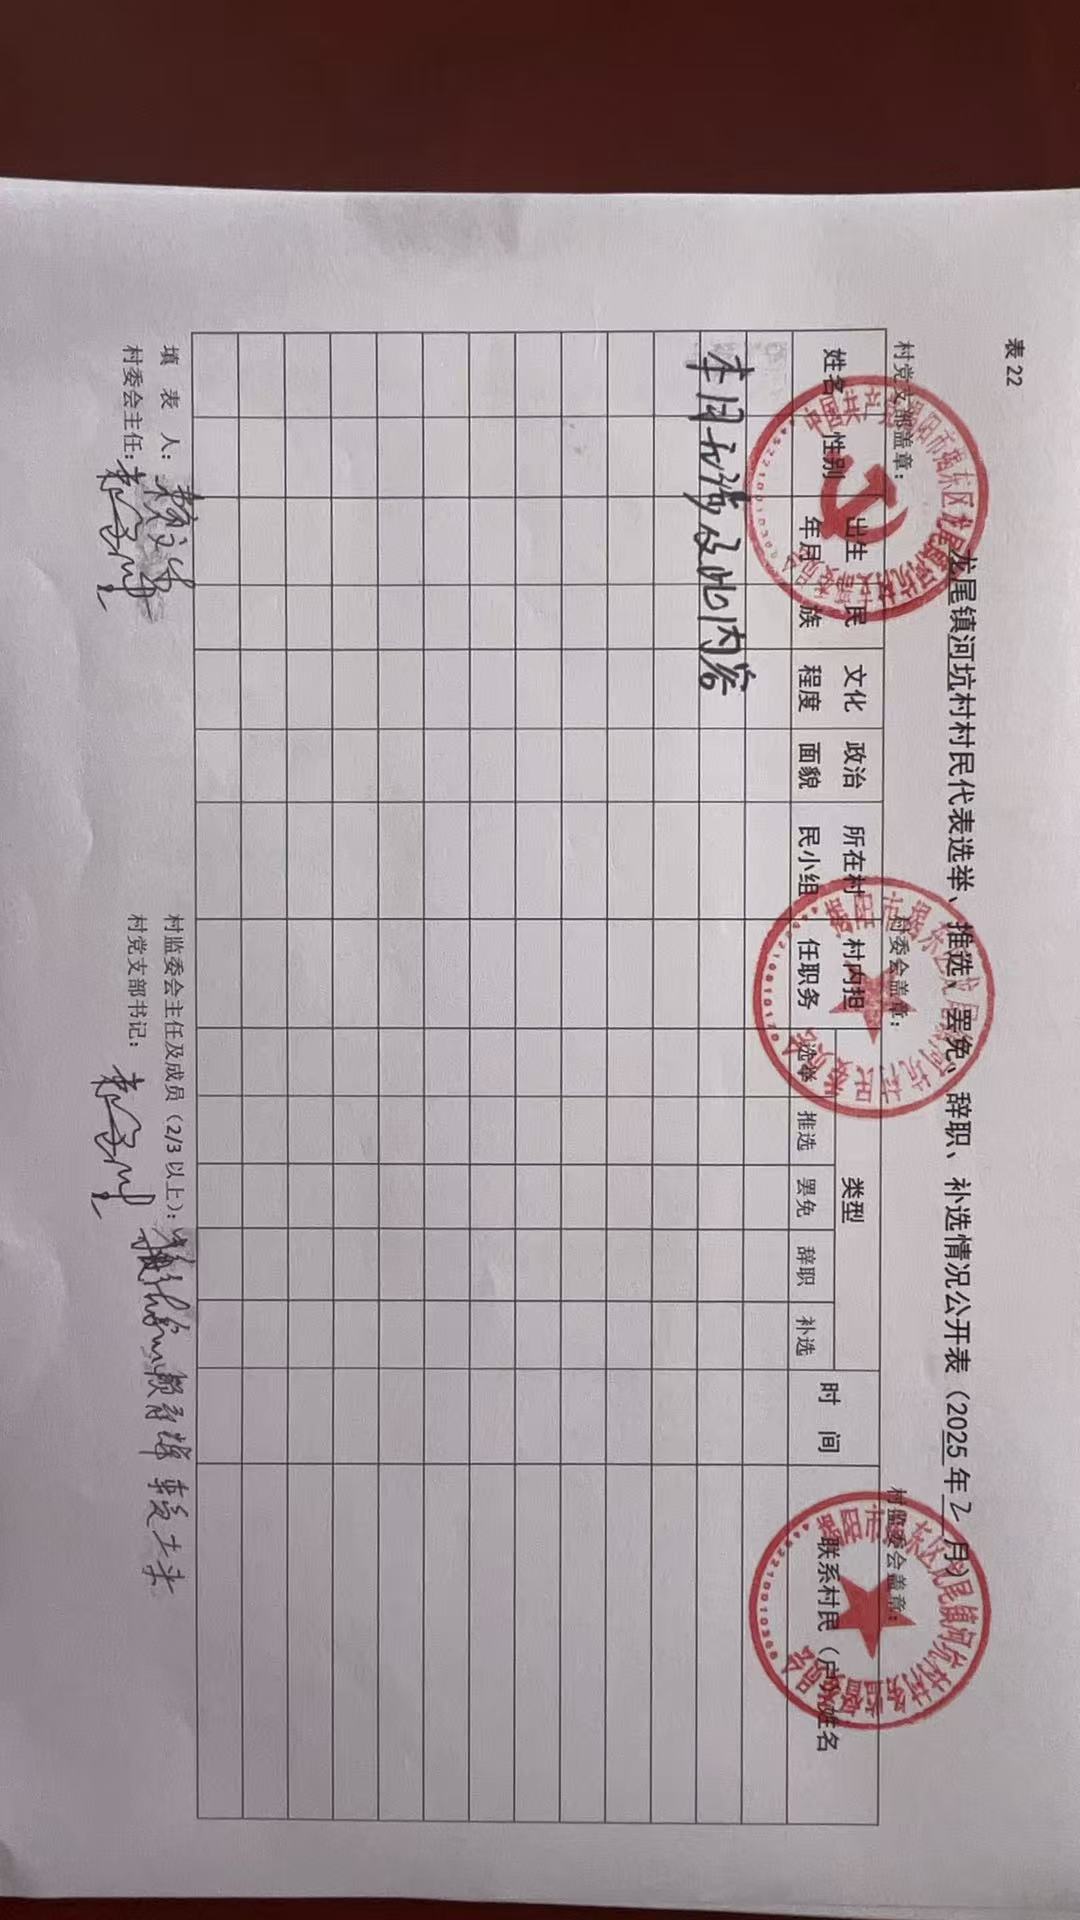 表 22
龙尾镇河坑村村民代表选举、推选、罢免、辞职、补选情况公开表（2025年2月）
村党支部盖章： 村委会盖章： 村监委会盖章：
姓名 性别 出生年月 民族 文化程度 政治面貌 所在村民小组 村内担任职务 类型 时 间 联系村民（户）姓名
选举 推选 罢免 辞职 补选
本月无涉及此内容
填 表 人： 村监委会主任及成员（2/3 以上）：
村委会主任： 村党支部书记：